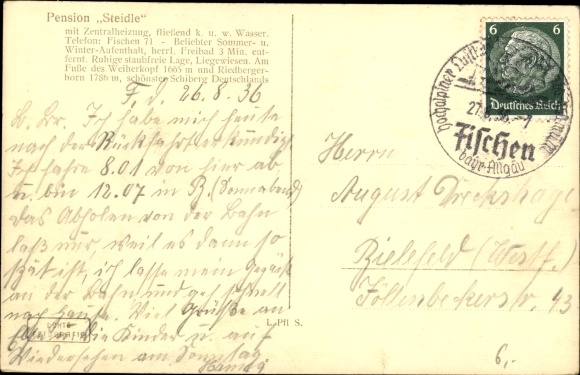 Pension „Steidle“
mit Zentralheizung, fließend k. u. w. Wasser.
Telefon: Fischen 71 - Beliebter Sommer- u.
Winter-Aufenthalt, herrl. Freibad 3 Min. ent-
fernt. Ruhige staubfreie Lage, Liegewiesen. Am
Fuße des Weiherkopf 1665 m und Riedberger-
horn 1786 m, schönster Schiberg Deutschlands
F. d. 26.8.36
L. Lr. Ich habe mich heute
nach der Rückfahrt erkundigt
Ich fahre 8.01 von hier ab
u. bin 12.07 in B. (Sonnabend)
Das Abholen von der Bahn
laß nur, weil es dann so
spät ist, ich lasse mein Gepäck
an der Bahn und geh schnell
nach Hause. Viel Grüße an
die Kinder u. auf
Wiedersehen am Sonntag.
Herrn
August Dreckshage
Bielefeld (Westf.)
Jöllenbeckerstr. 93
6 6
Deutsches Reich
Fischen
bayr. Allgäu
L. Pfl S.
6,-